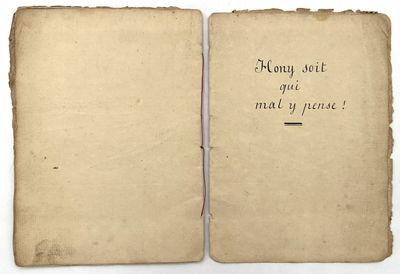 Hony soit
qui
mal y pense !